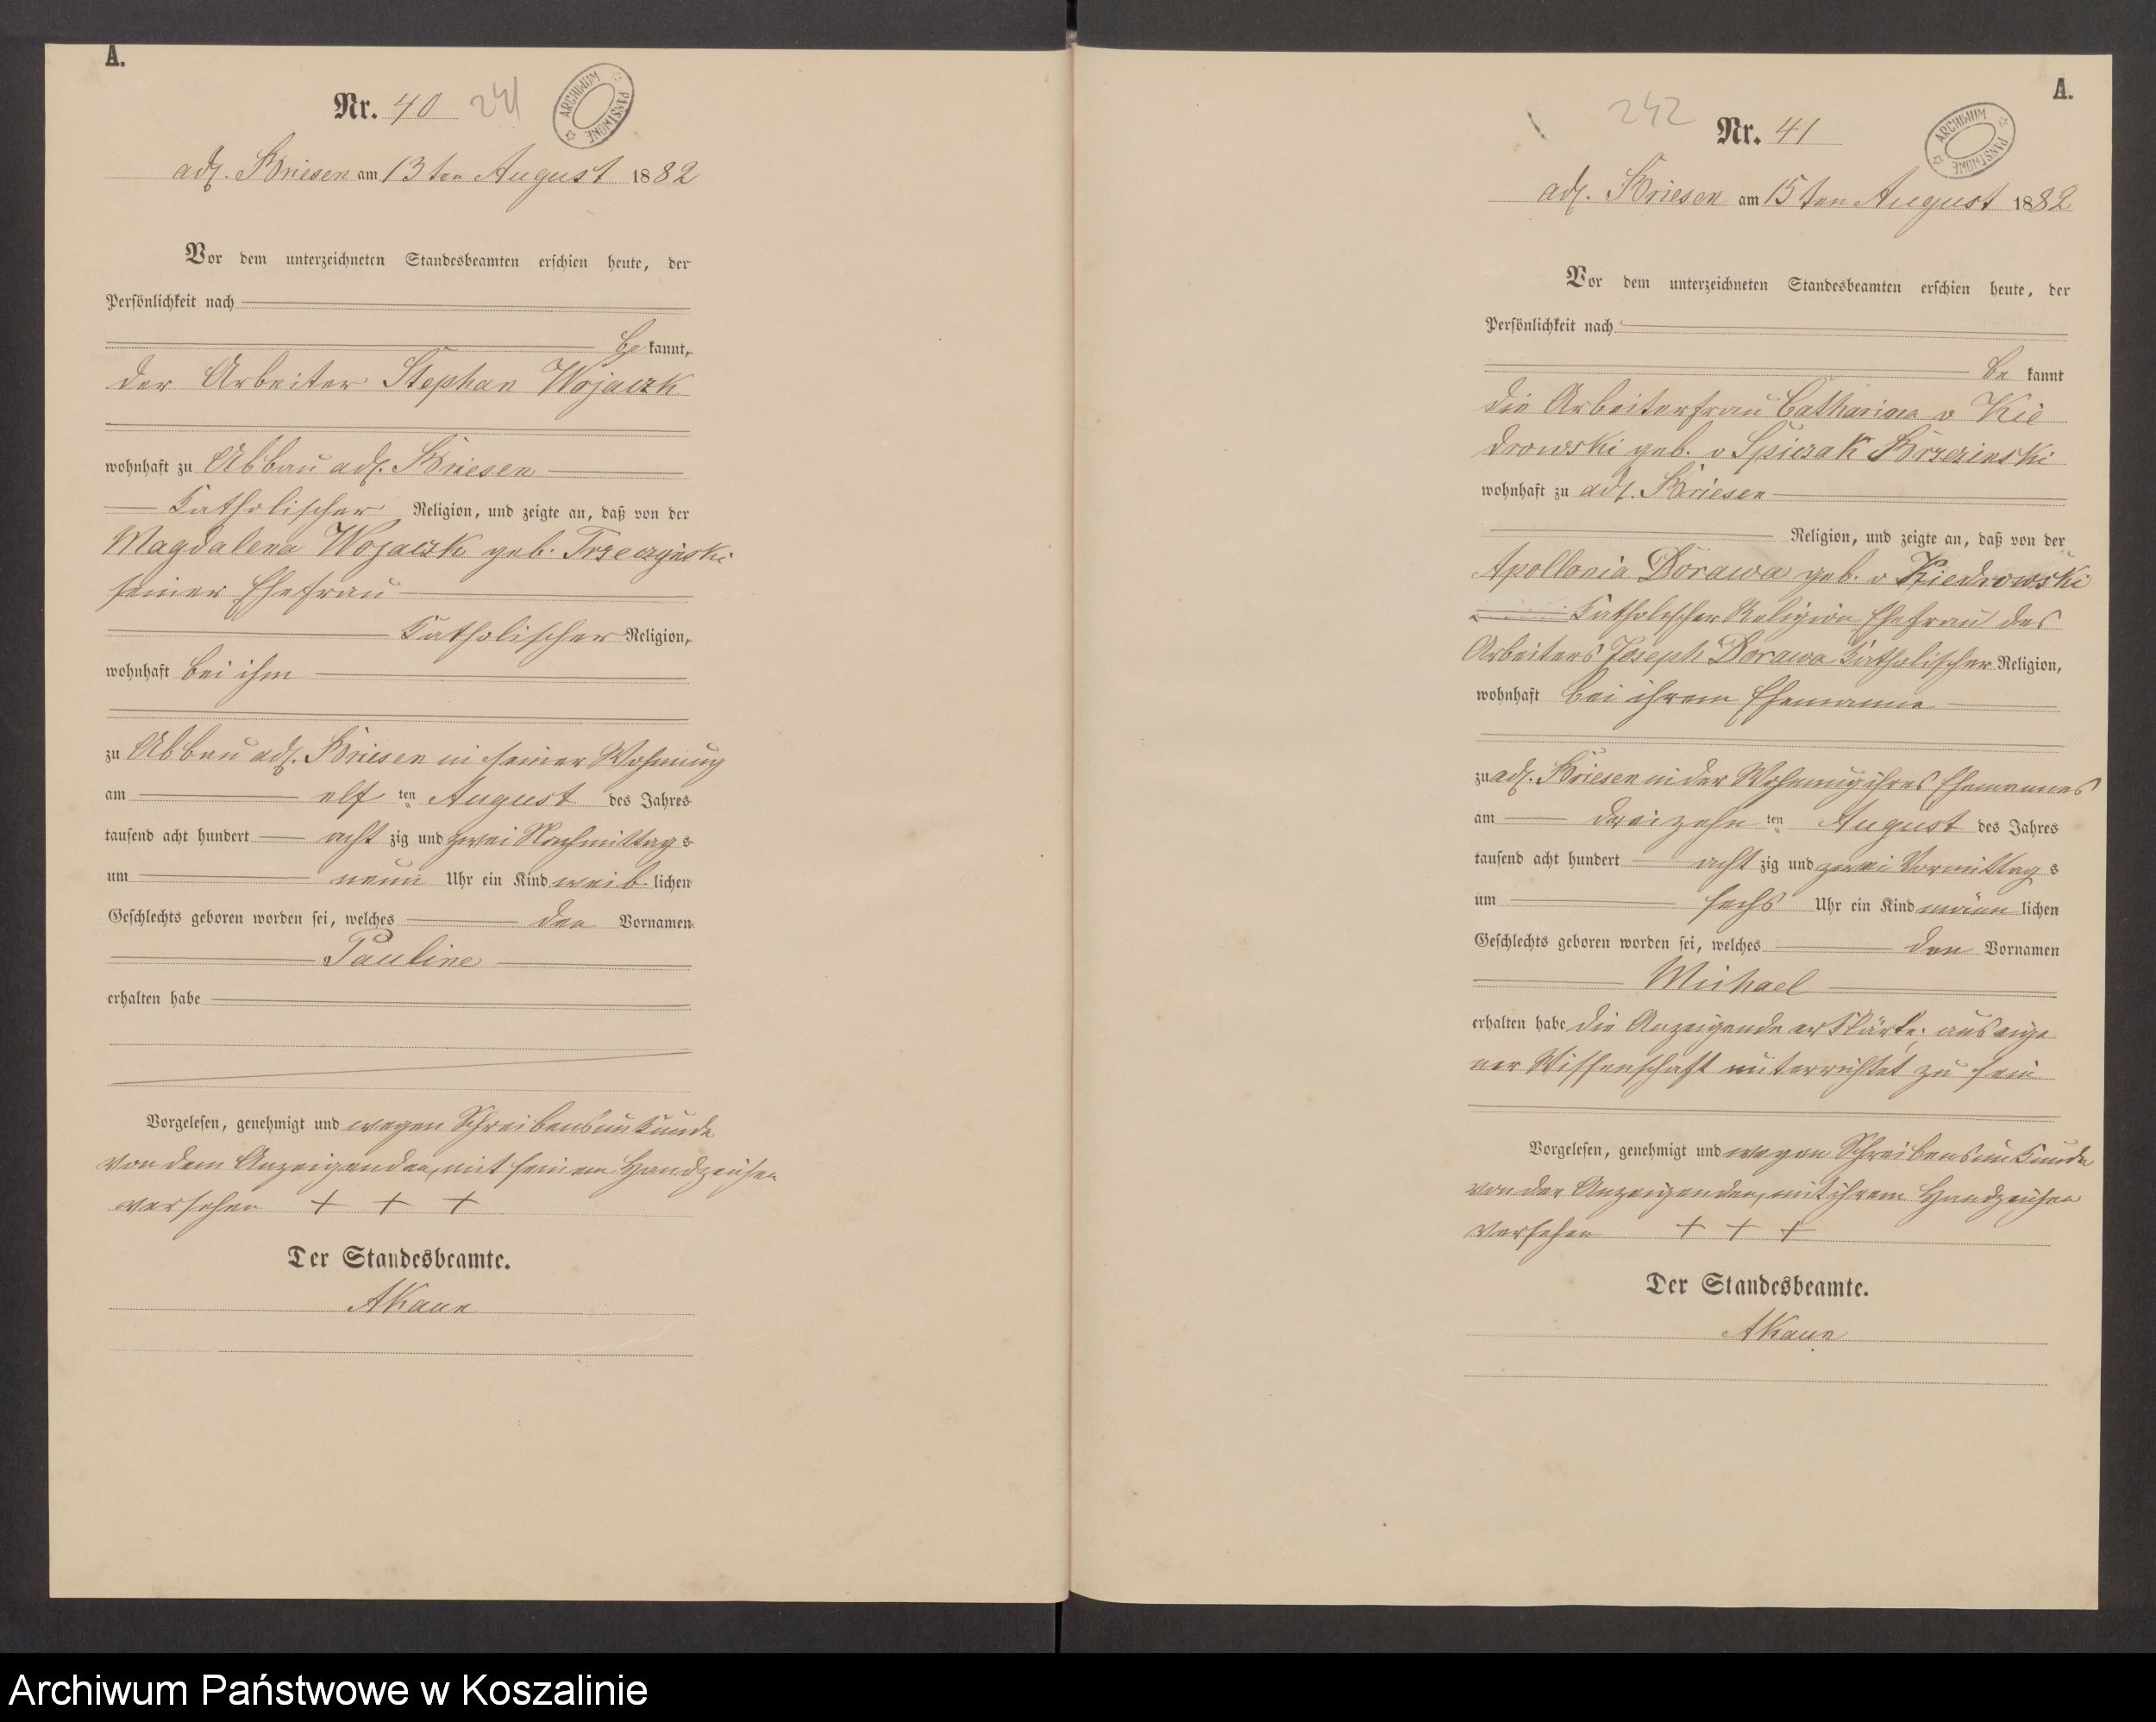 A.
Nr. 40 241
ARCHIWUM PAŃSTWOWE
adl. Briesen am 13ten August 1882
Vor dem unterzeichneten Standesbeamten erschien heute, der
Persönlichkeit nach
bekannt,
der Arbeiter Stephan Wojaczk
wohnhaft zu Abbau adl. Briesen
Katholischer Religion, und zeigte an, daß von der
Magdalena Wojaczk geb. Trzeczynski
seiner Ehefrau
Katholischer Religion,
wohnhaft bei ihm
zu Abbau adl. Briesen in seiner Wohnung
am elf ten August des Jahres
tausend acht hundert acht zig und zwei Nachmittags
um neun Uhr ein Kind weib lichen
Geschlechts geboren worden sei, welches den Vornamen
Pauline
erhalten habe
Vorgelesen, genehmigt und wegen Schreibensunkunde
von dem Anzeigenden, mit seinem Handzeichen
versehen + + +
Der Standesbeamte.
AKaun
A.
242 Nr. 41
ARCHIWUM PAŃSTWOWE
adl. Briesen am 15ten August 1882
Vor dem unterzeichneten Standesbeamten erschien heute, der
Persönlichkeit nach
be kannt
die Arbeiterfrau Catharina v Kie
drowski geb. v Spiczak Brzezinski
wohnhaft zu adl. Briesen
Religion, und zeigte an, daß von der
Apollonia Dorawa geb. v Kiedrowski
Katholischer Religion Ehefrau des
Arbeiters Joseph Dorawa Katholischer Religion,
wohnhaft bei ihrem Ehemanne
zu adl. Briesen in der Wohnung ihres Ehemannes
am dreizehn ten August des Jahres
tausend acht hundert acht zig und zwei Vormittags
um sechs Uhr ein Kind männ lichen
Geschlechts geboren worden sei, welches den Vornamen
Michael
erhalten habe die Anzeigende erklärte; aus eige
ner Wissenschaft unterrichtet zu sein
Vorgelesen, genehmigt und wegen Schreibensunkunde
von der Anzeigenden, mit ihrem Handzeichen
versehen + + +
Der Standesbeamte.
AKaun
Archiwum Państwowe w Koszalinie